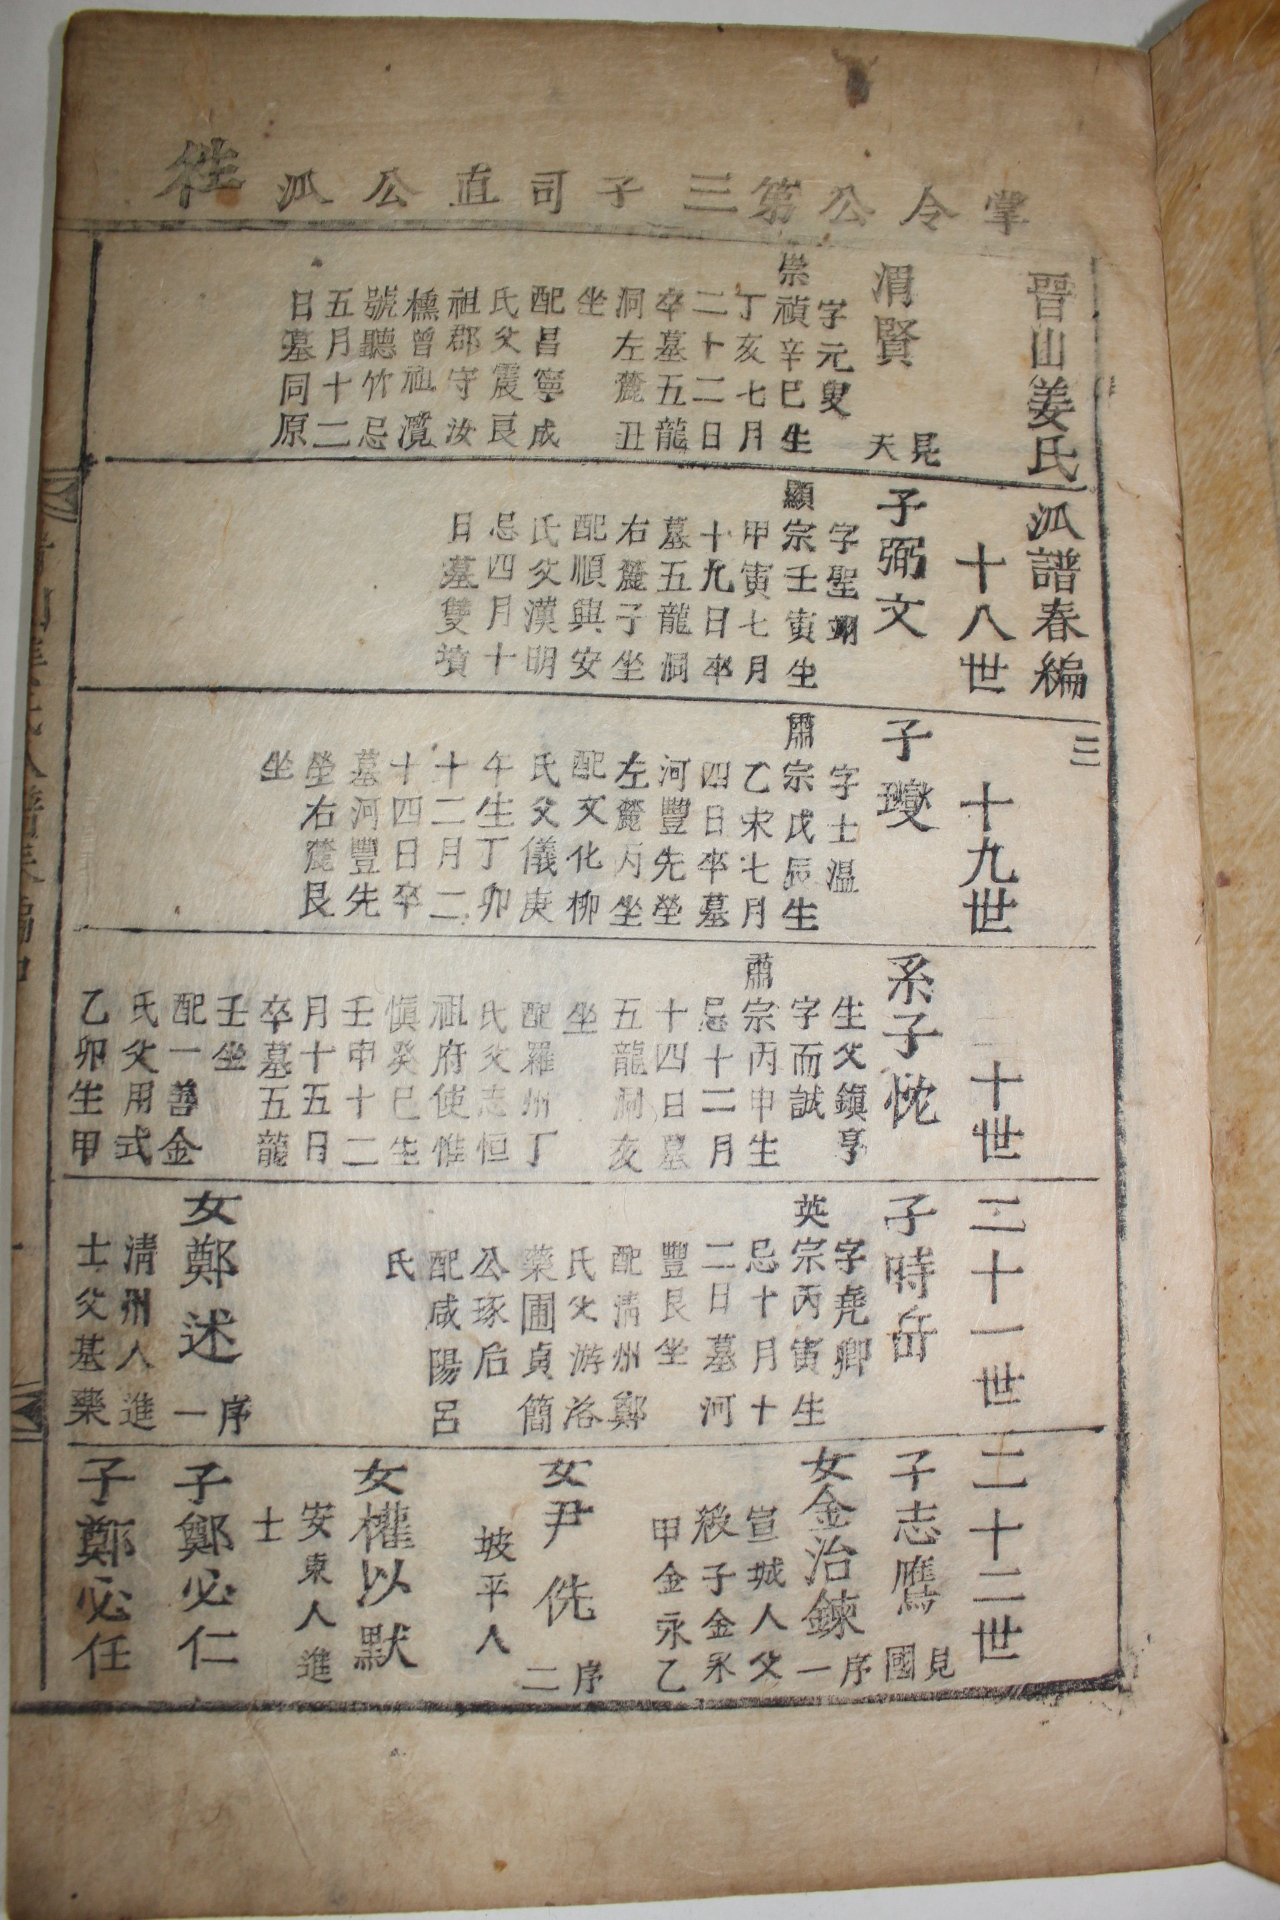 掌令公第三子司直公派
晋山姜氏派譜春編
三
渭賢
見天
字元叟
崇禎辛巳生
丁亥七月
二十二日
卒墓五龍
洞左麓丑
坐
配昌寧成
氏父震良
祖郡守汝
櫄曾祖濱
號聽竹忌
五月十二
日墓同原
十八世
子弼文
字聖翊
顯宗壬寅生
甲寅七月
十九日卒
墓五龍洞
右麓子坐
配順興安
氏父漢明
忌四月十
日墓雙墳
十九世
子㻇
字士溫
肅宗戊辰生
乙未七月
四日卒墓
河豐先塋
左麓丙坐
配文化柳
氏父儀庚
午生丁卯
十二月二
十四日卒
墓河豐先
塋右麓艮
坐
二十世
系子忱
生父鎭亨
字而誠
肅宗丙申生
忌十二月
十四日墓
五龍洞亥
坐
配羅州丁
氏父志恒
祖府使惟
愼癸巳生
壬申十二
月十五日
卒墓五龍
壬坐
配一善金
氏父用式
乙卯生甲
二十一世
子時岳
字堯卿
英宗丙寅生
忌十月十
二日墓河
豐艮坐
配淸州鄭
氏父游洛
藥圃貞簡
公琢后
配咸陽呂
氏
女鄭述
序一
淸州人進
士父基樂
二十二世
子志鷹
見國
女金治鍊
序一
宣城人父
子金永
甲金永乙
女尹侁
序二
坡平人
女權以默
安東人進
士
子鄭必仁
子鄭必任